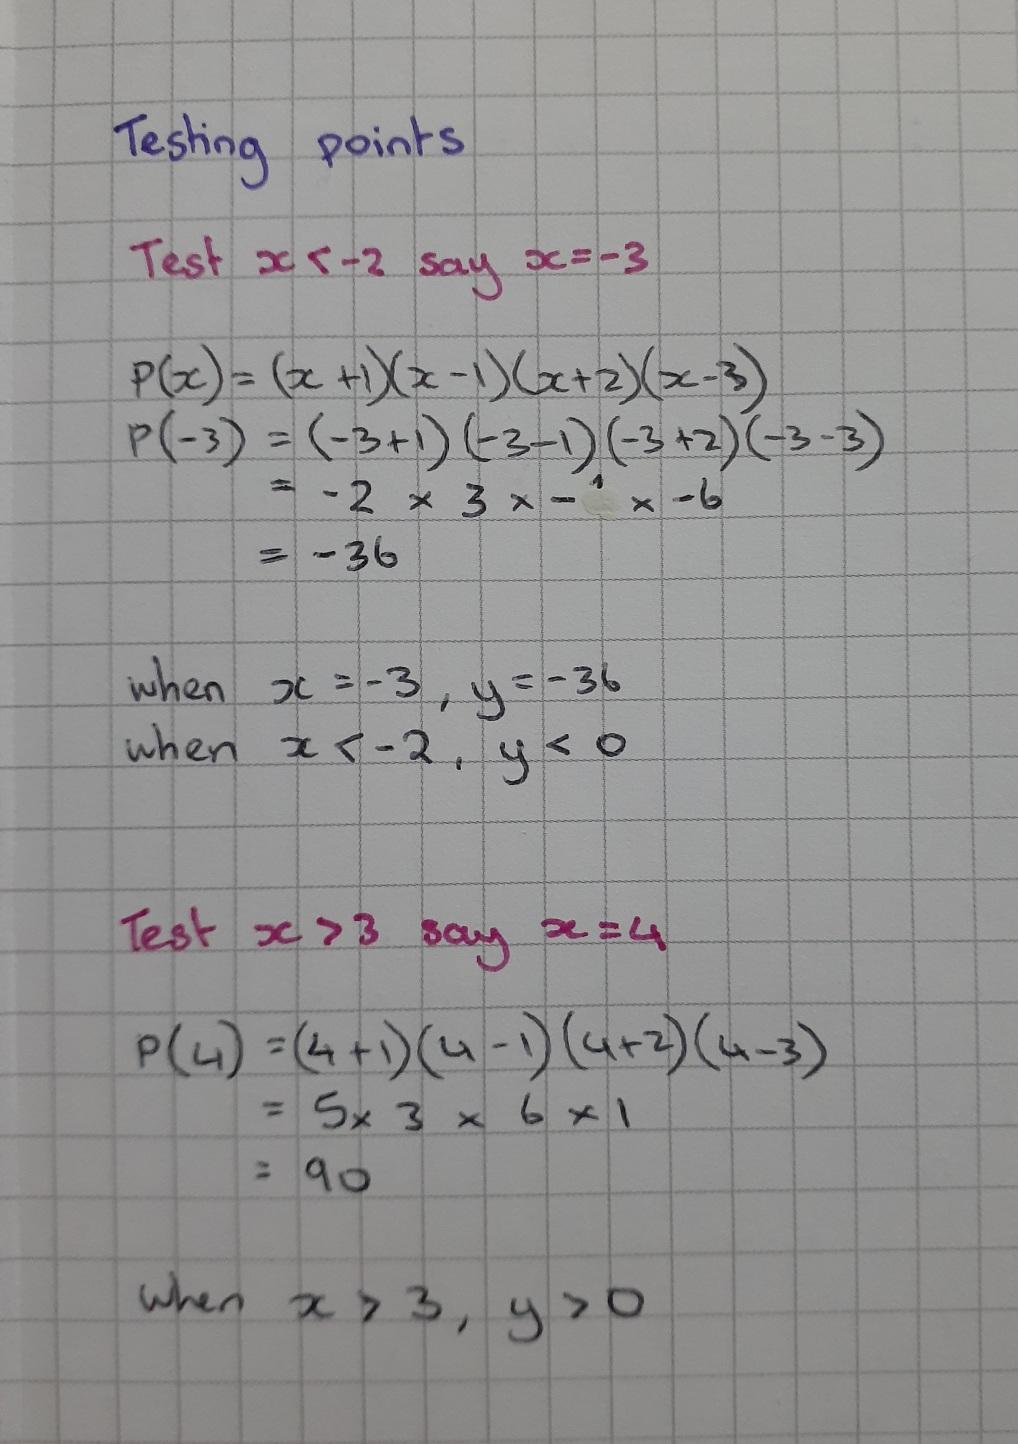 Testing points
Test x < -2 say x = -3
P(x) = (x +1)(x -1)(x+2)(x-3)
P(-3) = (-3+1) (-3-1) (-3+2) (-3-3)
= -2 × 3 × -1 × -6
= -36
when x = -3, y = -36
when x < -2, y < 0
Test x > 3 say x = 4
P(4) = (4+1)(4-1)(4+2)(4-3)
= 5 × 3 × 6 × 1
= 90
when x > 3, y > 0